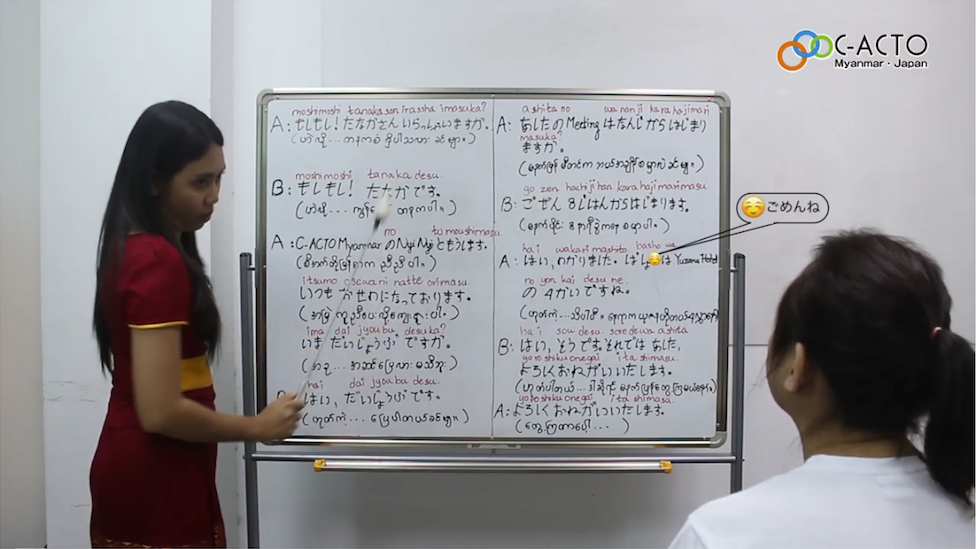 C-ACTO
Myanmar・Japan
moshimoshi tanaka san irassha imasuka?
A: もしもし！たなかさん いらっしゃいますか。
(ဟဲလို... တနကစံ ရှိပါသလား ခင်ဗျာ။)
moshimoshi tanaka desu.
B: もしもし！ たなかです。
(ဟဲလို... တနကပါ။)
no to moushimasu
A: C-ACTO Myanmar の Nyi Nyi ともうします。
(စီအက်တိုမြန်မာက ညီညီပါ။)
itsumo osewani natte orimasu.
いつも おせわになっております。
(အမြဲ ကူညီပေးလို့ကျေးဇူးပါ။)
ima dai jyoubu desuka?
いま だいじょうぶ ですか。
(အခု... အဆင်ပြေလား မသိဘူး)
hai dai jyoubu desu.
はい、だいじょうぶ です。
(ဟုတ်ကဲ့... ပြေပါတယ်ခင်ဗျ။)
ashita no wa nanji kara hajimari
A: あしたの Meeting は なんじ から はじまり
masuka?
ますか。
(မနက်ဖြန် မီတင်က ဘယ်အချိန်စမှာလဲ ခင်ဗျ။)
go zen hachiji han kara hajimarimasu
B: ごぜん 8じはんからはじまります。
(မနက်ပိုင်း ၈နာရီခွဲကနေ စမှာပါ။)
hai wakari mashita basho wa
A: はい、わかりました。ばしょは Yuzana Hotel
ro yon kai desu ne
の 4かいですね。
(ဟုတ်ကဲ့...)
hai sou desu. soredewa ashita
B: はい、そうです。それでは あした、
yoroshiku onegai itashimasu.
よろしくおねがいいたします。
(ဟုတ်ပါတယ်...)
yoroshiku onegai itashimasu
A: よろしくおねがいいたします。
(တွေ့ကြတာပေါ့...)
ごめんね